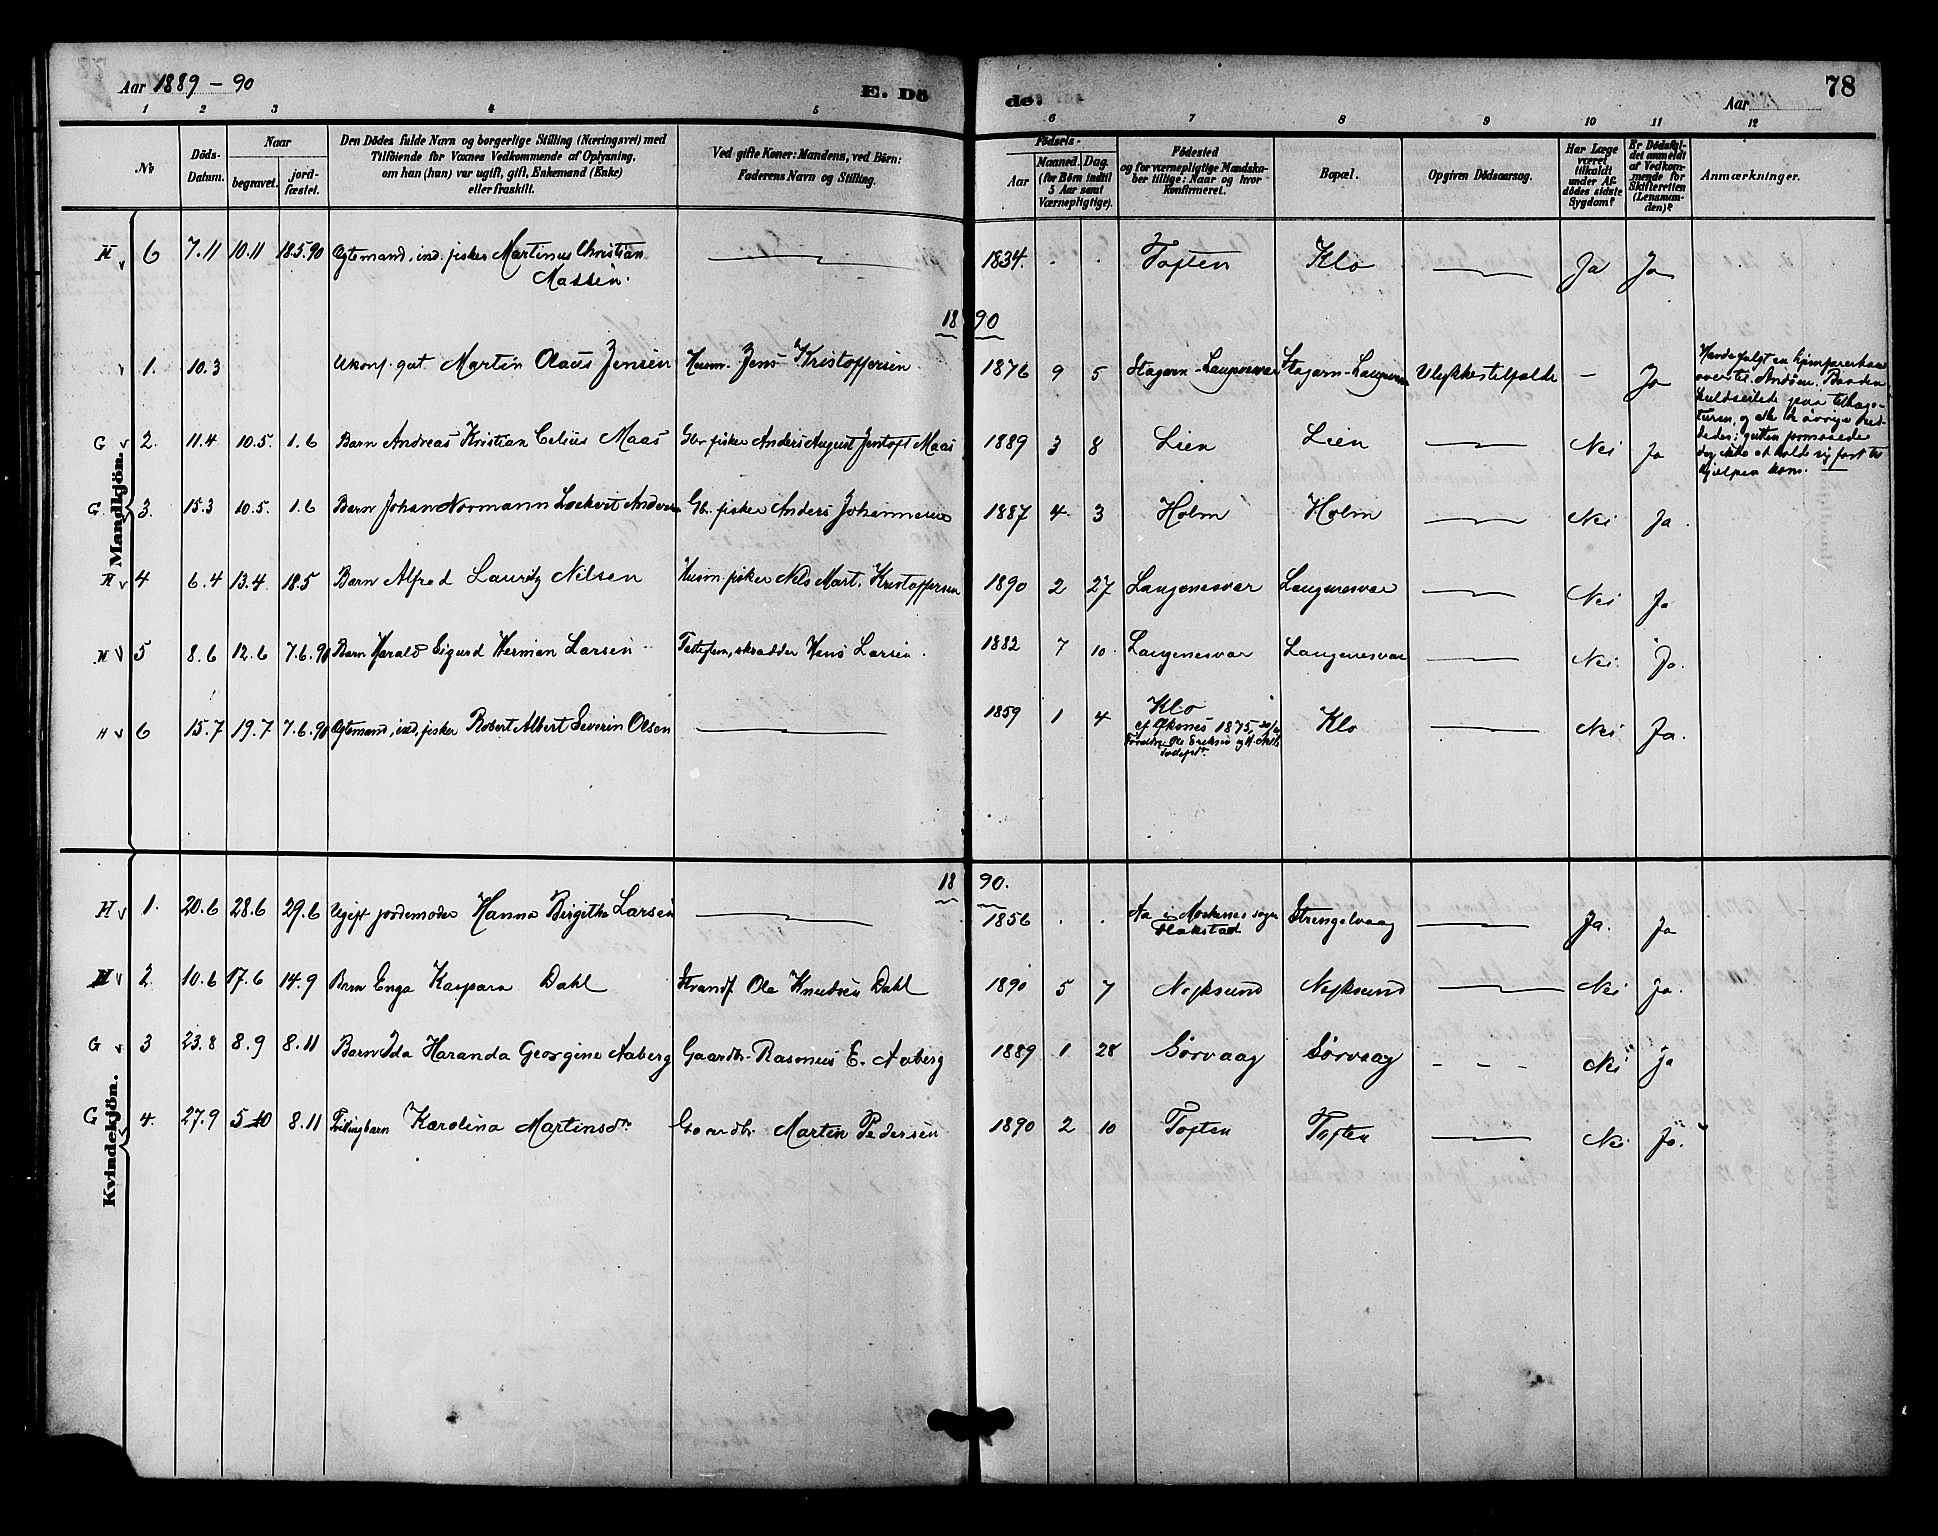 Aar 1889 - 90
E. Dö
de.
Aar
78
1 2 3 4 5 6 7 8 9 10 11 12
No
Döds-Datum.
Naar
begravet.
jord-fæstet.
Den Dödes fulde Navn og borgerlige Stilling (Næringsvei) med
Tilföiende for Voxnes Vedkommende af Oplysning,
om han (hun) var ugift, gift, Enkemand (Enke)
eller fraskilt.
Ved gifte Koner: Mandens, ved Börn:
Faderens Navn og Stilling.
Födsels-
Aar
Maaned. Dag.
(for Börn indtil
5 Aar samt
Værnepligtige).
Födested
og for værnepligtige Mandska-
ber tillige: Naar og hvor
Konfirmeret.
Bopæl.
Opgiven Dödsaarsag.
Har Læge
været
tilkaldt
under Af-
dödes sidste
Sygdom?
Er Dödsfal-
det anmeldt
af Vedkom-
mende for
Skifteretten
(Lensman-
den)?
Anmærkninger.
Mandkjön.
H 6 7.11 10.11 18.5.90 Egtemand, ind. fisker Martinus Christian Massen. 1834. Toften Klo Ja Ja
1890
1. 10.3 Ukonf. gut Martin Olaus Jensen Husm. Jens Kristoffersen 1876 9 5 Ulykkestilfælde - Ja
over til Andöen. Baaden
kuldseilede paa tilbage-
turen, og alle de övrige
gutten formaaede
sig fast til
hjelpen kom.
G 2. 11.4 10.5. 1.6 Barn Andreas Kristian Celius Maas Gbr. fisker Anders August Jentoft Maas 1889 3 8 Lien Lien Nei Ja
G 3. 15.3 10.5. 1.6 Barn Johan Normann Lockert Anders Gb. fisker Anders Johannesen 1887 4 3 Holm Holm Nei Ja.
H 4 6.4 13.4. 18.5 Barn Alfred Lauritz Nilsen Husm. fisker Nils Mart. Kristoffersen 1890 2 27 Langenesvær Langenesvær Nei Ja
H 5 8.6 12.6 7.6.91 Barn Harald Sigurd Herman Larsen skradder Hens Larsen. 1882 7 10. Langenesvær Langenesvær Nei Ja.
H 6 15.7 19.7 7.6.91 Egtemand, ind. fisker Robert Albert Severin Olsen 1859 1 4 Klo
cf Öksnes 1875
Ole Eriksen
Klo Nei Ja.
Kvindekjön.
1890.
H 1. 20.6 28.6 29.6 Ugift jordemoder Hanna Birgitha Larsen 1856 Aa i Moskenes sogn
Flakstad Strengelvaag Ja. Ja
H 2. 10.6 17.6 14.9 Barn Enga Kaspara Dahl Strands. Ole Knudsen Dahl 1890 5 7 Nyksund Nyksund Nei Ja.
G 3 23.8 8.9 8.11 Barn Ida Haranda Georgine Aaberg Gaardbr. Rasmus E. Aaberg 1889 1 28 Sörvaag Sörvaag - - - Nei Ja
G 4. 27.9 5 10 8.11 Tvillingbarn Karolina Martinsdtr. Gaardbr. Martin Pedersen 1890 2 10 Toften Toften Nei Ja.